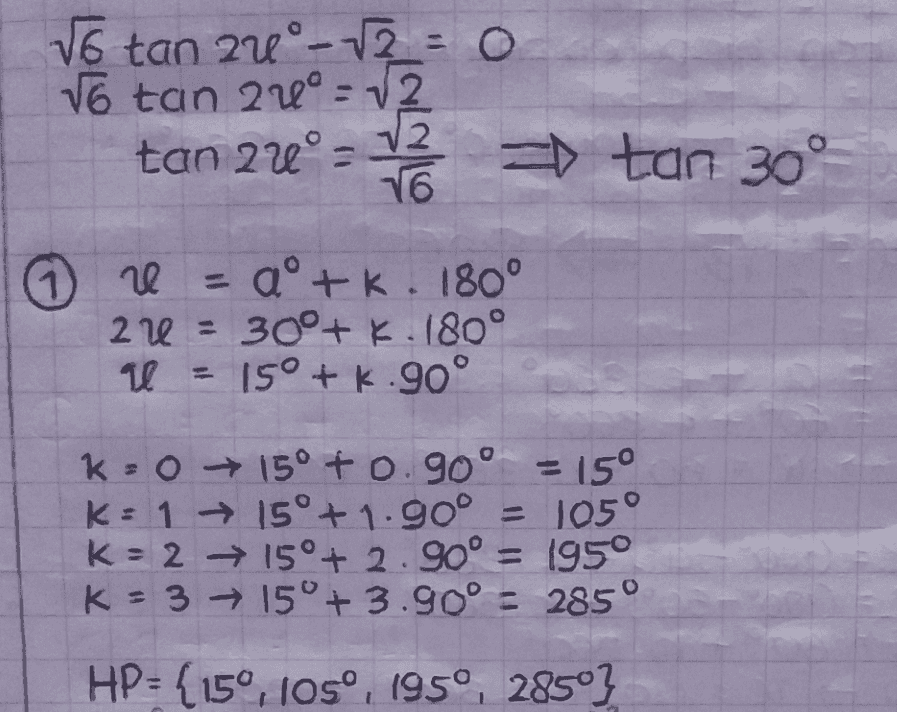 √6 tan 2x° - √2 = 0
√6 tan 2x° = √2
tan 2x° = √2/√6 ⇒ tan 30°
① x = a° + k . 180°
2x = 30° + k . 180°
x = 15° + k . 90°
k = 0 → 15° + 0 . 90° = 15°
k = 1 → 15° + 1 . 90° = 105°
k = 2 → 15° + 2 . 90° = 195°
k = 3 → 15° + 3 . 90° = 285°
HP = {15°, 105°, 195°, 285°}